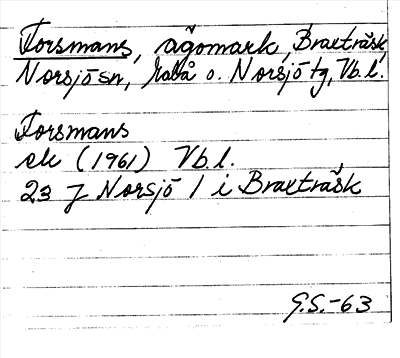 Forsmans, ägomark, Braxträsk,
Norsjö sn, Malå o. Norsjö tg, Vb.l.
Forsmans
ek (1961) Vb.l.
23 J Norsjö 1 i Braxträsk
G.S.-63